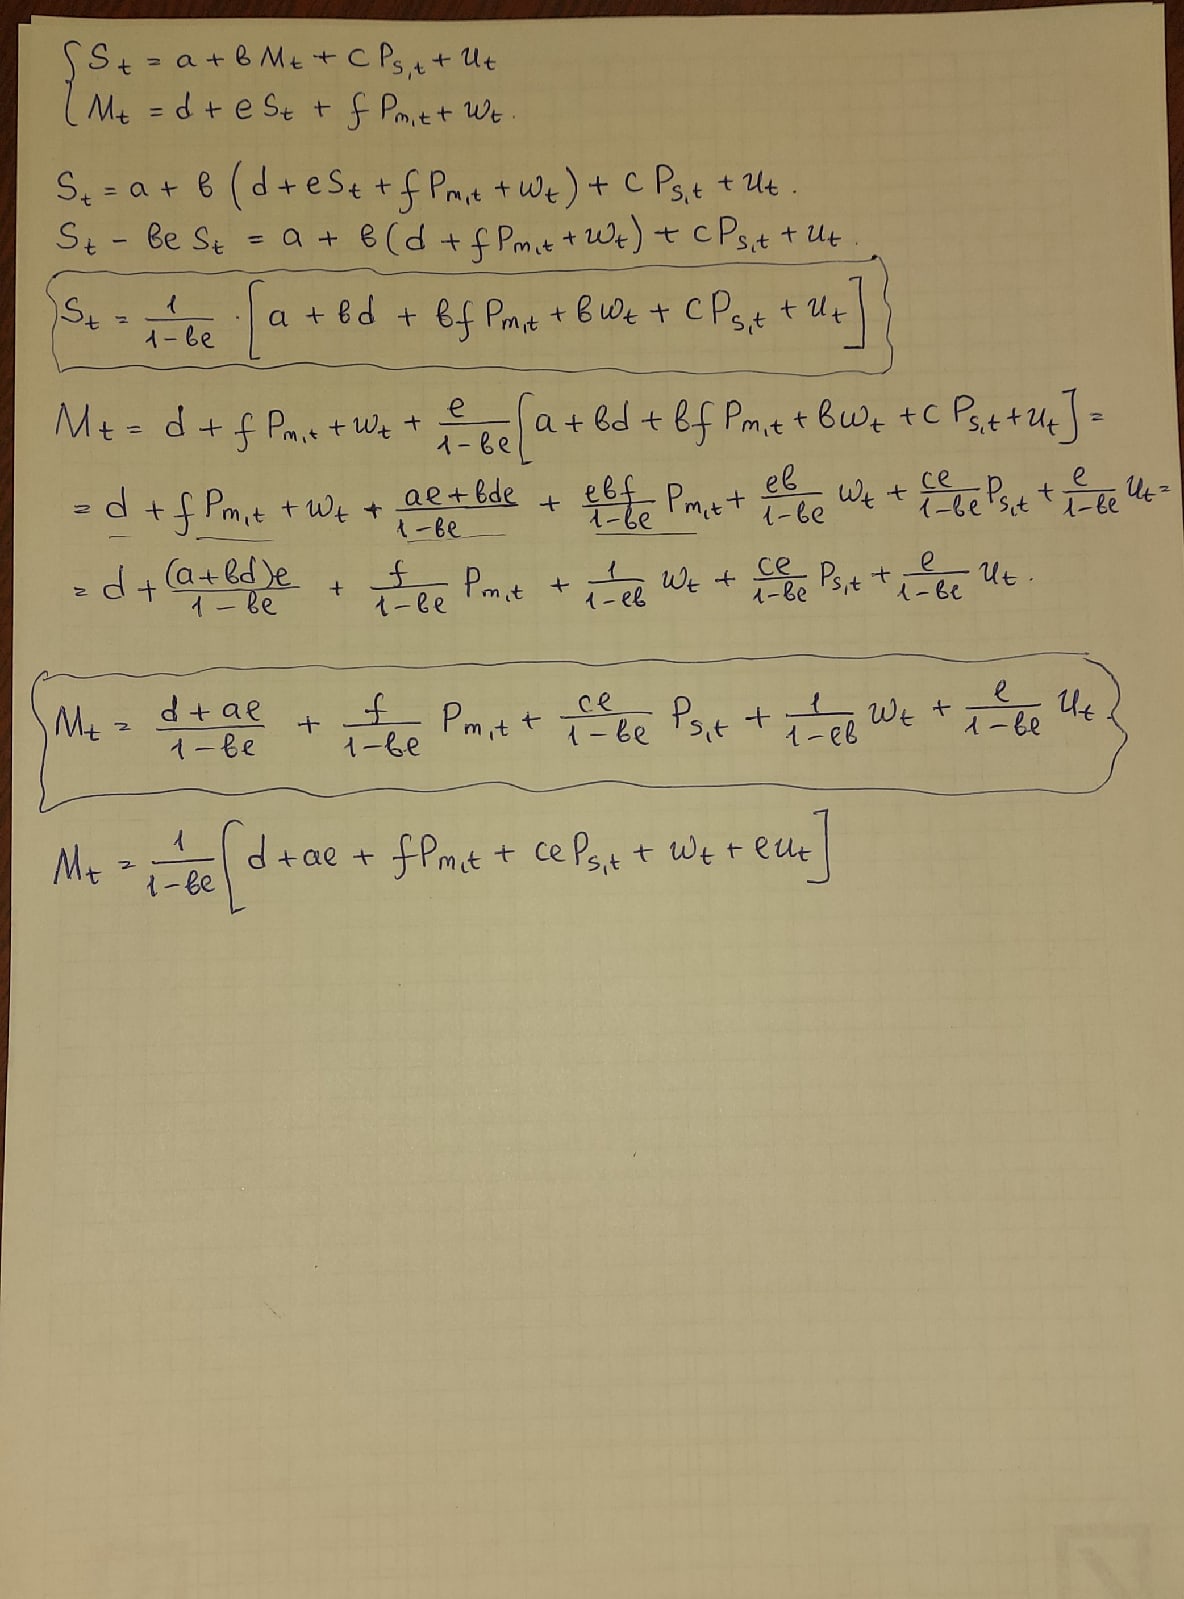 { S_t = a + b M_t + c P_{s,t} + u_t
{ M_t = d + e S_t + f P_{m,t} + w_t.
S_t = a + b (d + e S_t + f P_{m,t} + w_t) + c P_{s,t} + u_t.
S_t - be S_t = a + b (d + f P_{m,t} + w_t) + c P_{s,t} + u_t.
S_t = \frac{1}{1-be} · [a + bd + bf P_{m,t} + b w_t + c P_{s,t} + u_t]
M_t = d + f P_{m,t} + w_t + \frac{e}{1-be} [a + bd + bf P_{m,t} + b w_t + c P_{s,t} + u_t] =
= d + f P_{m,t} + w_t + \frac{ae+bde}{1-be} + \frac{ebf}{1-be} P_{m,t} + \frac{eb}{1-be} w_t + \frac{ce}{1-be} P_{s,t} + \frac{e}{1-be} u_t =
= d + \frac{(a+bd)e}{1-be} + \frac{f}{1-be} P_{m,t} + \frac{1}{1-eb} w_t + \frac{ce}{1-be} P_{s,t} + \frac{e}{1-be} u_t.
M_t = \frac{d+ae}{1-be} + \frac{f}{1-be} P_{m,t} + \frac{ce}{1-be} P_{s,t} + \frac{1}{1-eb} w_t + \frac{e}{1-be} u_t.
M_t = \frac{1}{1-be} [d + ae + f P_{m,t} + ce P_{s,t} + w_t + e u_t]